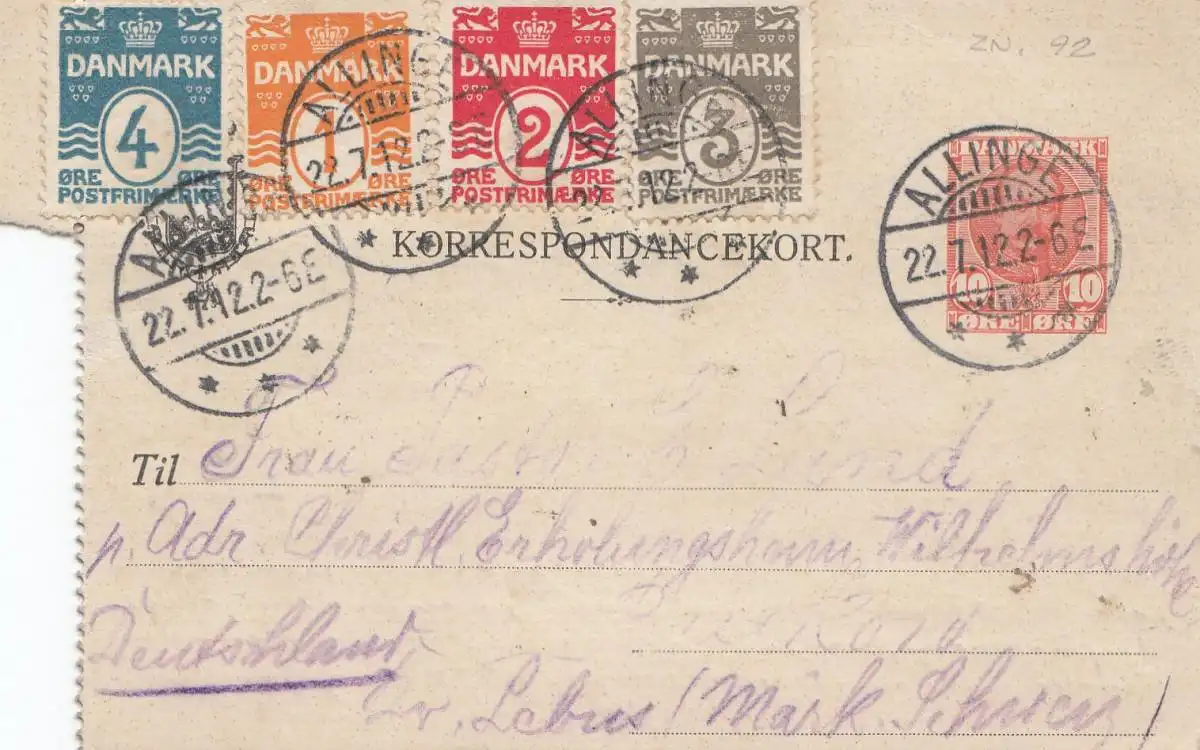 ZN. 92
DANMARK
4
ØRE ØRE
POSTFRIMÆRKE
DANMARK
1
ØRE ØRE
POSTFRIMÆRKE
DANMARK
2
ØRE ØRE
POSTFRIMÆRKE
DANMARK
3
ØRE ØRE
POSTFRIMÆRKE
ALLINGE
22.7.12.2-6E
ALLINGE
22.7.12.2-6E
DANMARK
10 10
ØRE ØRE
KORRESPONDANCEKORT.
Til Frau Pastor
p. Adr. Christl. Erholungsheim, Wilhelmshöhe
Deutschland,
Kr. Lebus (Märk. Schweiz)